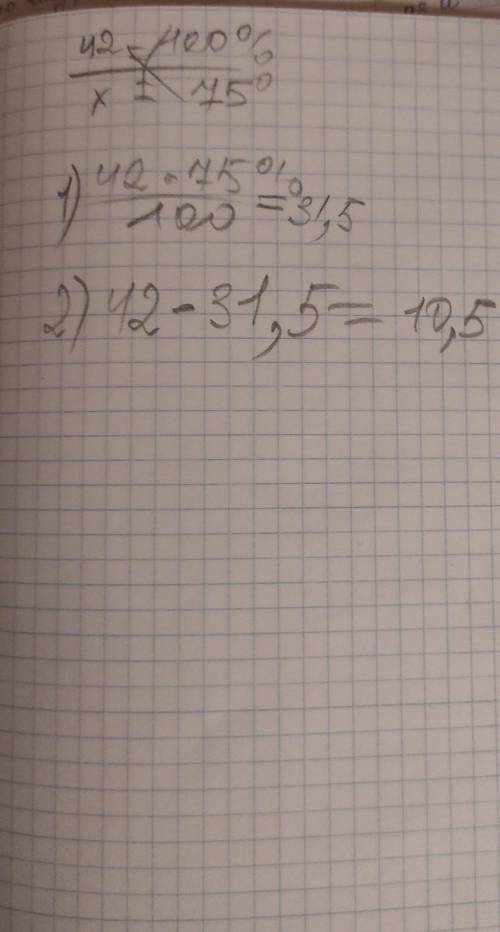 42 - 100%
x - 75%
1) 42 · 75% / 100 = 31,5
2) 42 - 31,5 = 10,5